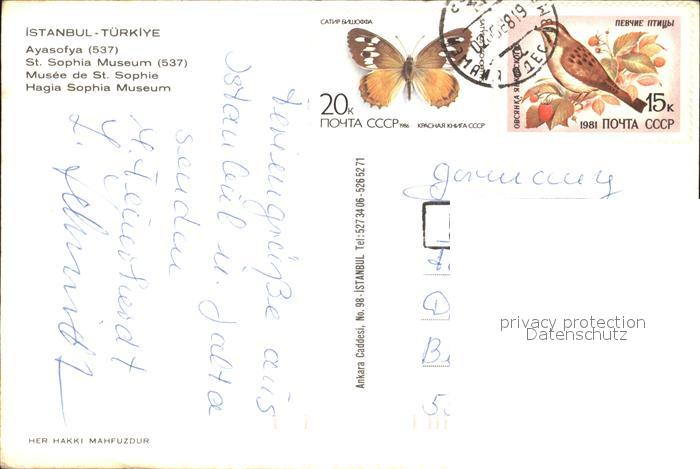 İSTANBUL - TÜRKİYE
Ayasofya (537)
St. Sophia Museum (537)
Musée de St. Sophie
Hagia Sophia Museum
САТИР БИШОФФА
20к
ПОЧТА СССР 1986 КРАСНАЯ КНИГА СССР
ПЕВЧИЕ ПТИЦЫ
ОВСЯНКА
15к
1981 ПОЧТА СССР
Feriengrüße aus
Istanbul u. Jalta
senden
Schmidt
Ankara Caddesi, No. 98 - İSTANBUL Tel: 527 34 06 - 526 52 71
D
B
5
privacy protection
Datenschutz
HER HAKKI MAHFUZDUR